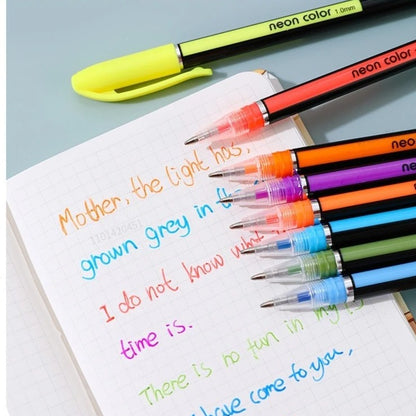 neon color 1.0mm
neon color
neon color
neon
Mother, the light has,
grown grey in the
I do not know
time is.
There is no fun in my
have come to you,